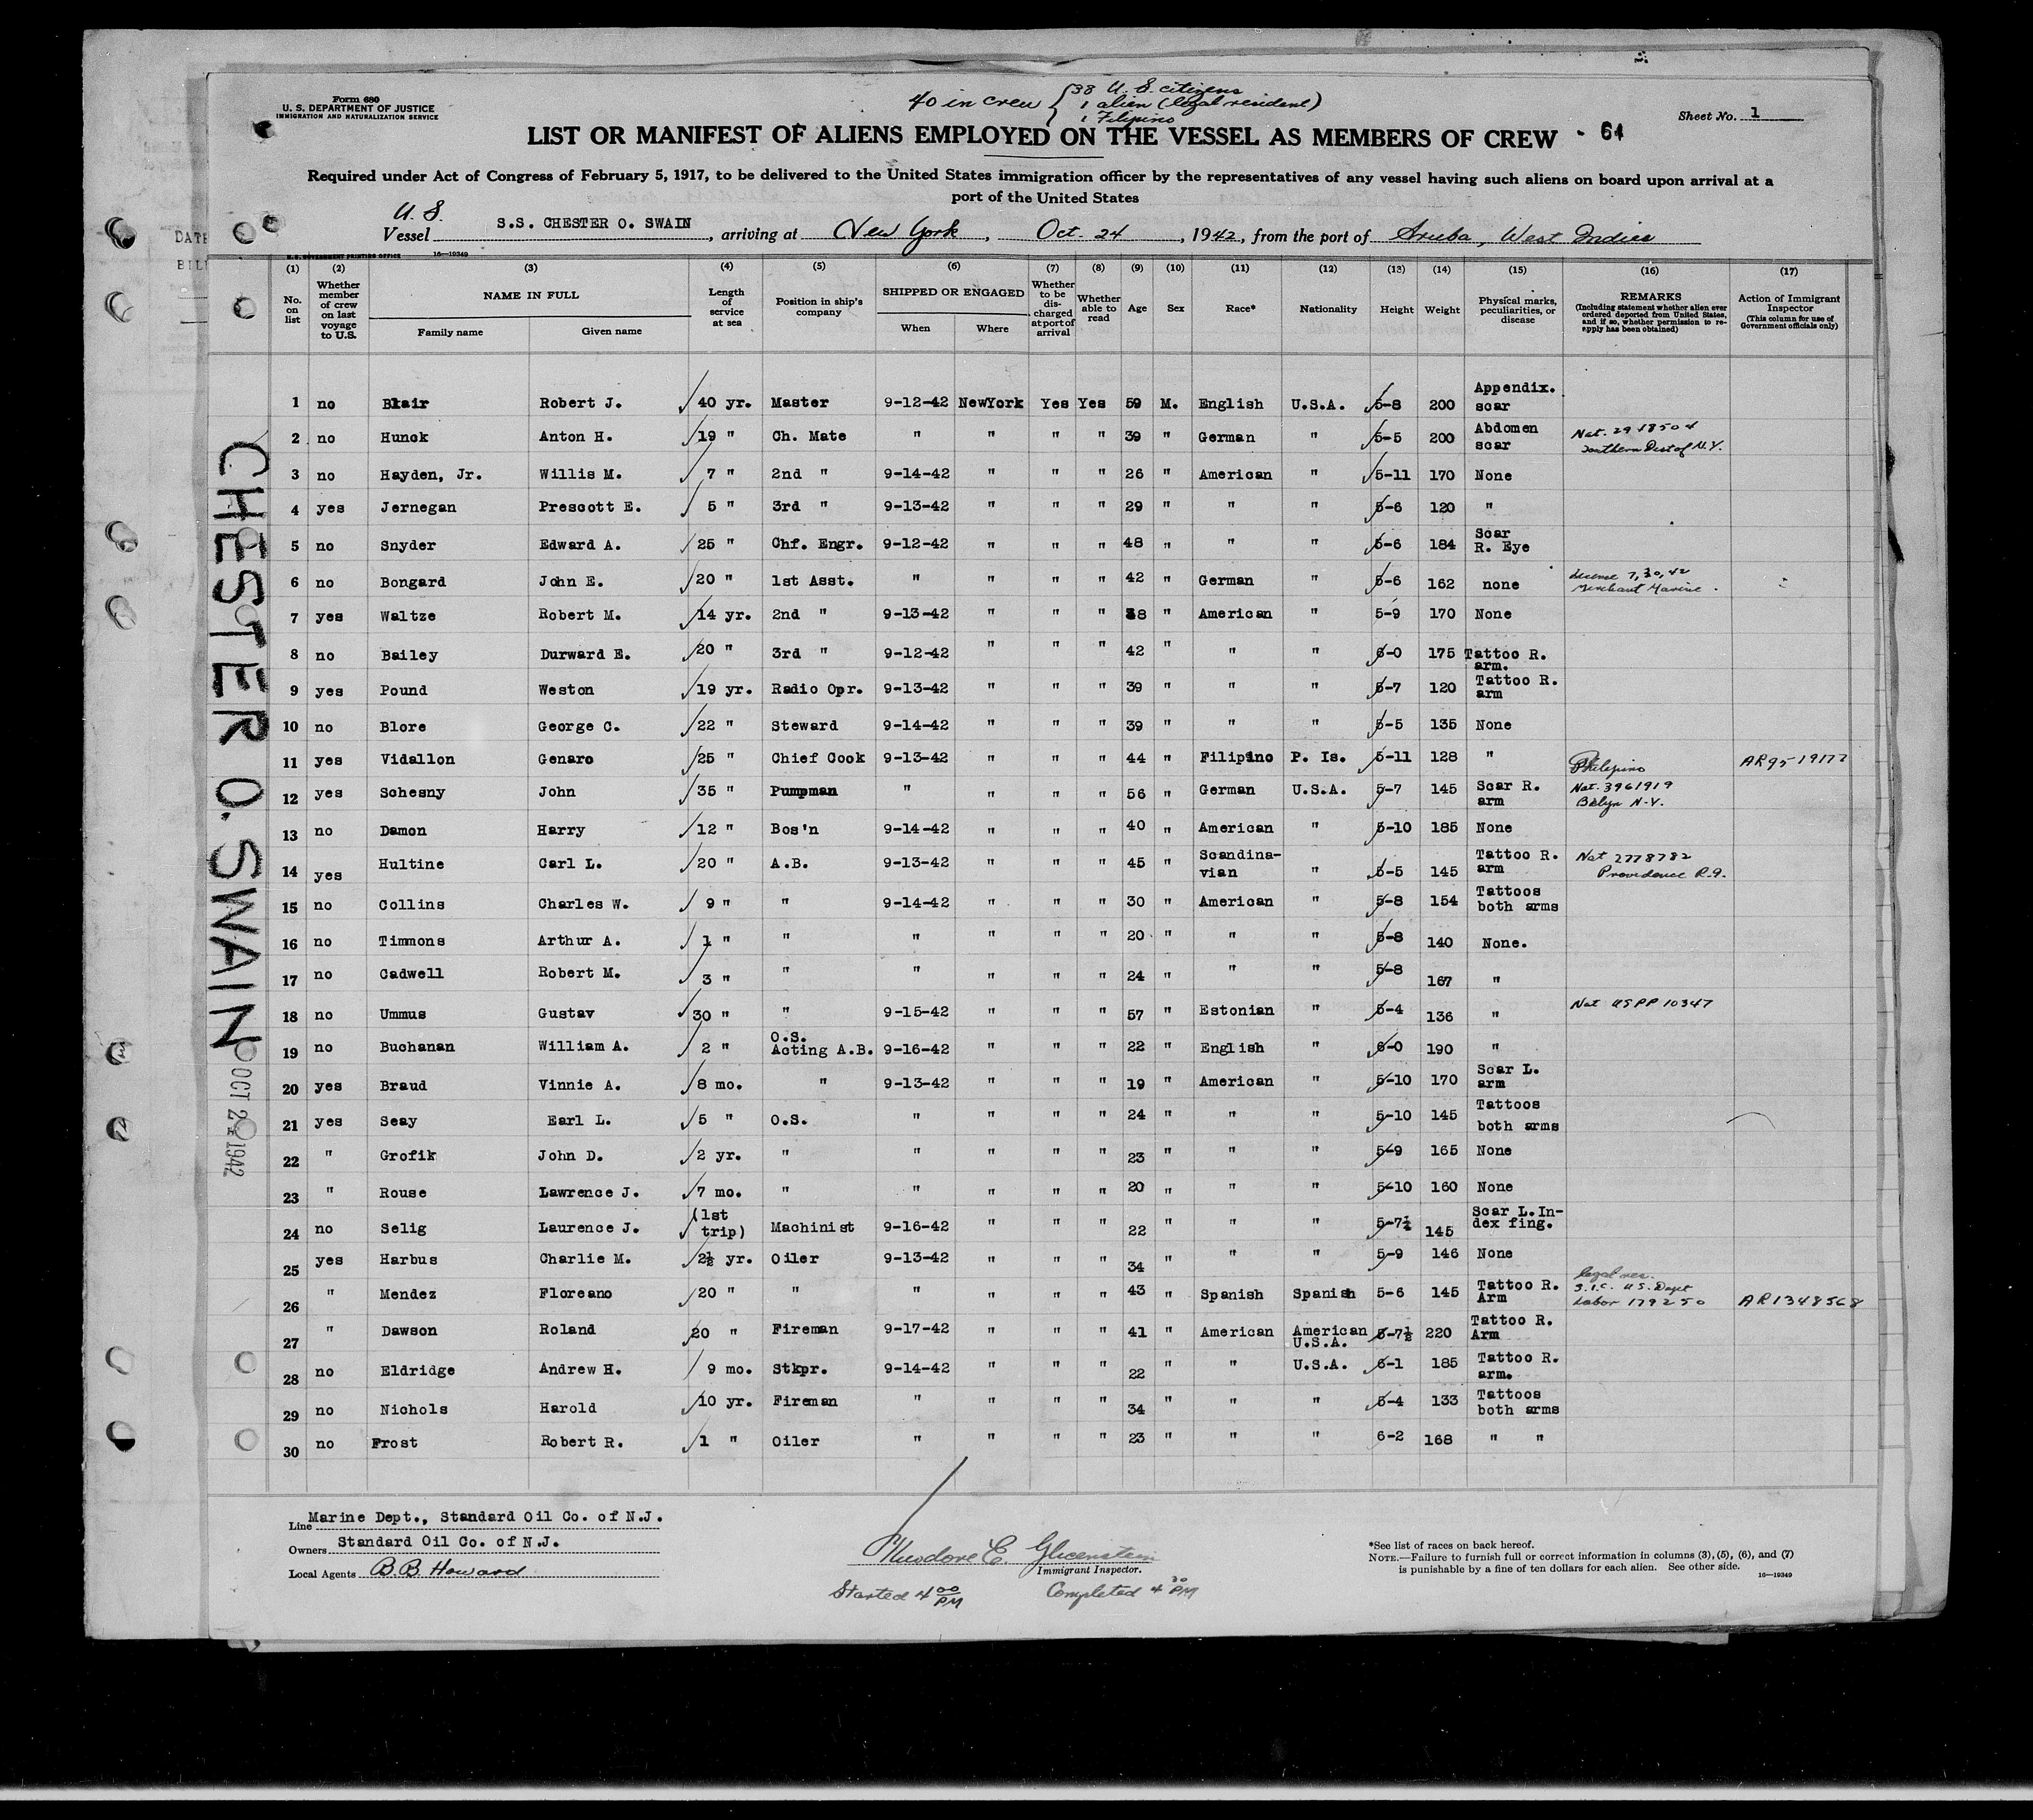 Form 680
U. S. DEPARTMENT OF JUSTICE
IMMIGRATION AND NATURALIZATION SERVICE
40 in crew { 38 U. S. citizens
1 alien (legal resident)
1 Filipino
Sheet No. 1
LIST OR MANIFEST OF ALIENS EMPLOYED ON THE VESSEL AS MEMBERS OF CREW - 64
Required under Act of Congress of February 5, 1917, to be delivered to the United States immigration officer by the representatives of any vessel having such aliens on board upon arrival at a
port of the United States
U. S.
Vessel S.S. CHESTER O. SWAIN, arriving at New York, Oct. 24, 1942, from the port of Aruba, West Indies
U.S. GOVERNMENT PRINTING OFFICE 16—19349
(1) (2) (3) (4) (5) (6) (7) (8) (9) (10) (11) (12) (13) (14) (15) (16) (17)
No. on list
Whether member of crew on last voyage to U.S.
NAME IN FULL
Family name
Given name
Length of service at sea
Position in ship's company
SHIPPED OR ENGAGED
When
Where
Whether to be discharged at port of arrival
Whether able to read
Age
Sex
Race*
Nationality
Height
Weight
Physical marks, peculiarities, or disease
REMARKS
(Including statement whether alien ever ordered deported from United States, and if so, whether permission to reapply has been obtained)
Action of Immigrant Inspector
(This column for use of Government officials only)
1 no Blair Robert J. 40 yr. Master 9-12-42 NewYork Yes Yes 59 M. English U.S.A. 5-8 200 Appendix. scar
2 no Hunck Anton H. 19 " Ch. Mate " " " " 39 " German " 5-5 200 Abdomen scar Nat. 2918504 Southern Dist of N.Y.
3 no Hayden, Jr. Willis M. 7 " 2nd " 9-14-42 " " " 26 " American " 5-11 170 None
4 yes Jernegan Prescott E. 5 " 3rd " 9-13-42 " " " 29 " " " 5-6 120 "
5 no Snyder Edward A. 25 " Chf. Engr. 9-12-42 " " " 48 " " " 5-6 184 Scar R. Eye
6 no Bongard John E. 20 " 1st Asst. " " " " 42 " German " 5-6 162 none license 7,30,42 Merchant Marine.
7 yes Waltze Robert M. 14 yr. 2nd " 9-13-42 " " " 38 " American " 5-9 170 None
8 no Bailey Durward E. 20 " 3rd " 9-12-42 " " " 42 " " " 6-0 175 Tattoo R. arm.
9 yes Pound Weston 19 yr. Radio Opr. 9-13-42 " " " 39 " " " 5-7 120 Tattoo R. arm
10 no Blore George C. 22 " Steward 9-14-42 " " " 39 " " " 5-5 135 None
11 yes Vidallon Genaro 25 " Chief Cook 9-13-42 " " " 44 " Filipino P. Is. 5-11 128 " Philipino AR95-19177
12 yes Schesny John 35 " Pumpman " " " " 56 " German U.S.A. 5-7 145 Scar R. arm Nat. 3961919 Bklyn N.Y.
13 no Damon Harry 12 " Bos'n 9-14-42 " " " 40 " American " 5-10 185 None
14 yes Hultine Carl L. 20 " A.B. 9-13-42 " " " 45 " Scandina-vian " 5-5 145 Tattoo R. arm Nat 2778782 Providence R.I.
15 no Collins Charles W. 9 " " 9-14-42 " " " 30 " American " 5-8 154 Tattoos both arms
16 no Timmons Arthur A. 1 " " " " " " 20 " " " 5-8 140 None.
17 no Cadwell Robert M. 3 " " " " " " 24 " " " 5-8 167 "
18 no Ummus Gustav 30 " " 9-15-42 " " " 57 " Estonian " 5-4 136 " Nat USPP 10347
19 no Buchanan William A. 2 " O.S. Acting A.B. 9-16-42 " " " 22 " English " 6-0 190 "
20 yes Braud Vinnie A. 8 mo. " 9-13-42 " " " 19 " American " 5-10 170 Scar L. arm
21 yes Seay Earl L. 5 " O.S. " " " " 24 " " " 5-10 145 Tattoos both arms
22 " Grofik John D. 2 yr. " " " " " 23 " " " 5-9 165 None
23 " Rouse Lawrence J. 7 mo. " " " " " 20 " " " 5-10 160 None
24 no Selig Laurence J. (1st trip) Machinist 9-16-42 " " " 22 " " " 5-7½ 145 Scar L.In-dex fing.
25 yes Harbus Charlie M. 2½ yr. Oiler 9-13-42 " " " 34 " " " 5-9 146 None
26 " Mendez Floreano 20 " " " " " " 43 " Spanish Spanish 5-6 145 Tattoo R. Arm legal res. S.I.C. U.S. Dept Labor 179250 AR1348568
27 " Dawson Roland 20 " Fireman 9-17-42 " " " 41 " American American U.S.A. 5-7½ 220 Tattoo R. Arm
28 no Eldridge Andrew H. 9 mo. Stkpr. 9-14-42 " " " 22 " " U.S.A. 6-1 185 Tattoo R. arm.
29 no Nichols Harold 10 yr. Fireman " " " " 34 " " " 5-4 133 Tattoos both arms
30 no Frost Robert R. 1 " Oiler " " " " 23 " " " 6-2 168 " "
CHESTER O. SWAIN
OCT 24 1942
DATE
Line Marine Dept., Standard Oil Co. of N.J.
Owners Standard Oil Co. of N.J.
Local Agents B.B. Howard
Theodore E. Glicenstein
Immigrant Inspector.
Started 4 00 PM Completed 4 30 PM
*See list of races on back hereof.
NOTE.—Failure to furnish full or correct information in columns (3), (5), (6), and (7)
is punishable by a fine of ten dollars for each alien. See other side. 16—19349